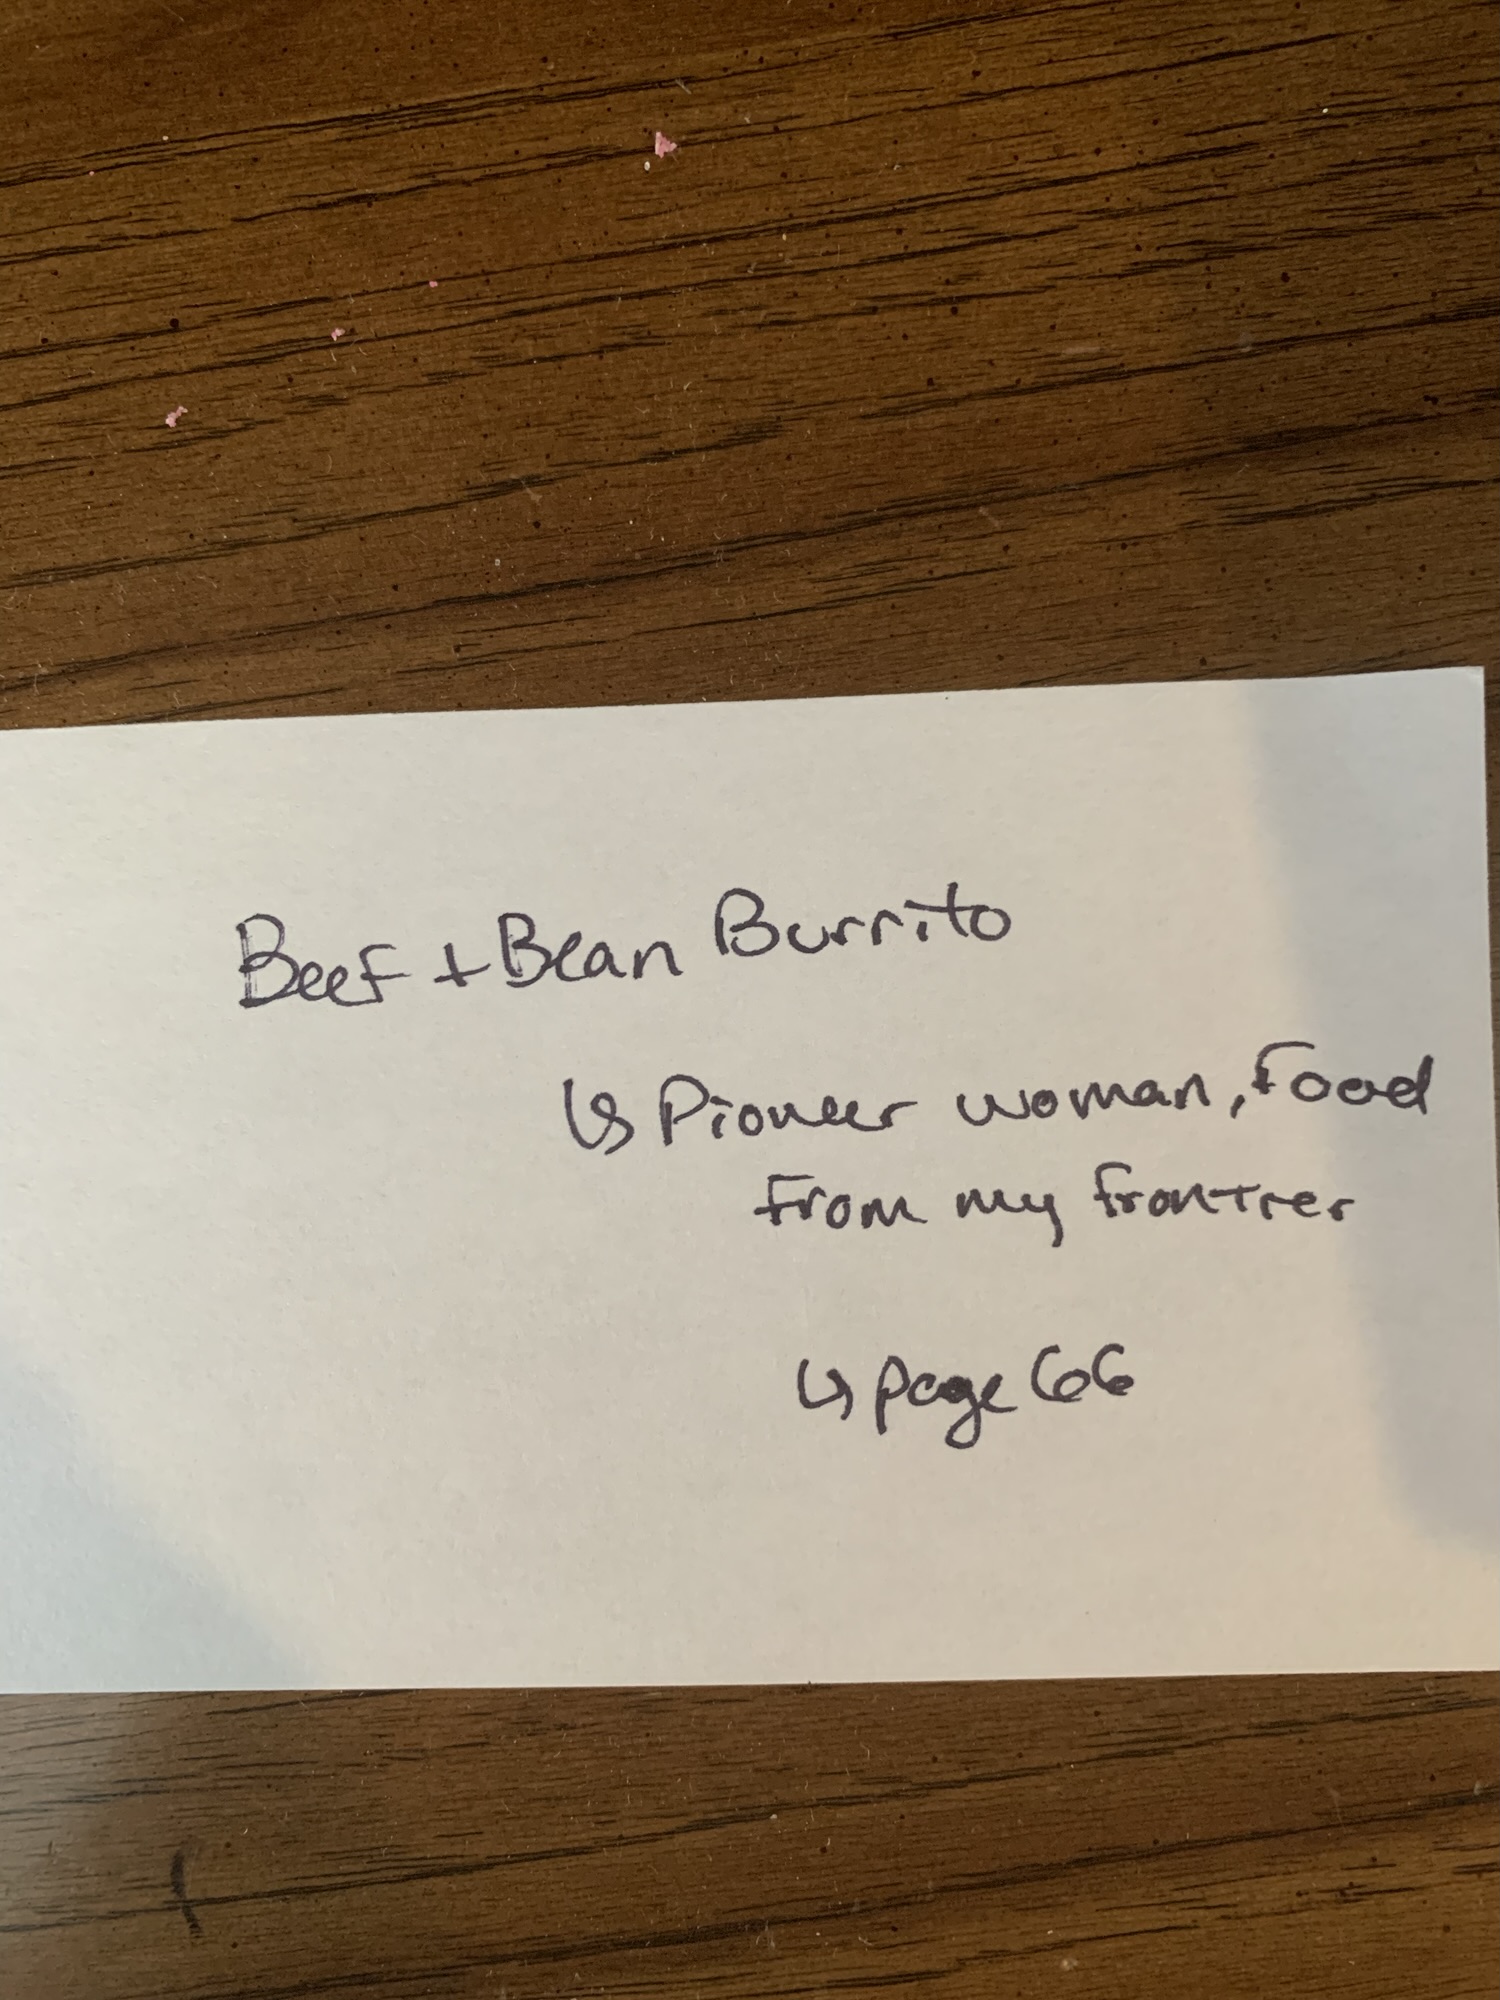 Beef + Bean Burrito
↳ Pioneer woman, Food
From my frontier
↳ page 66